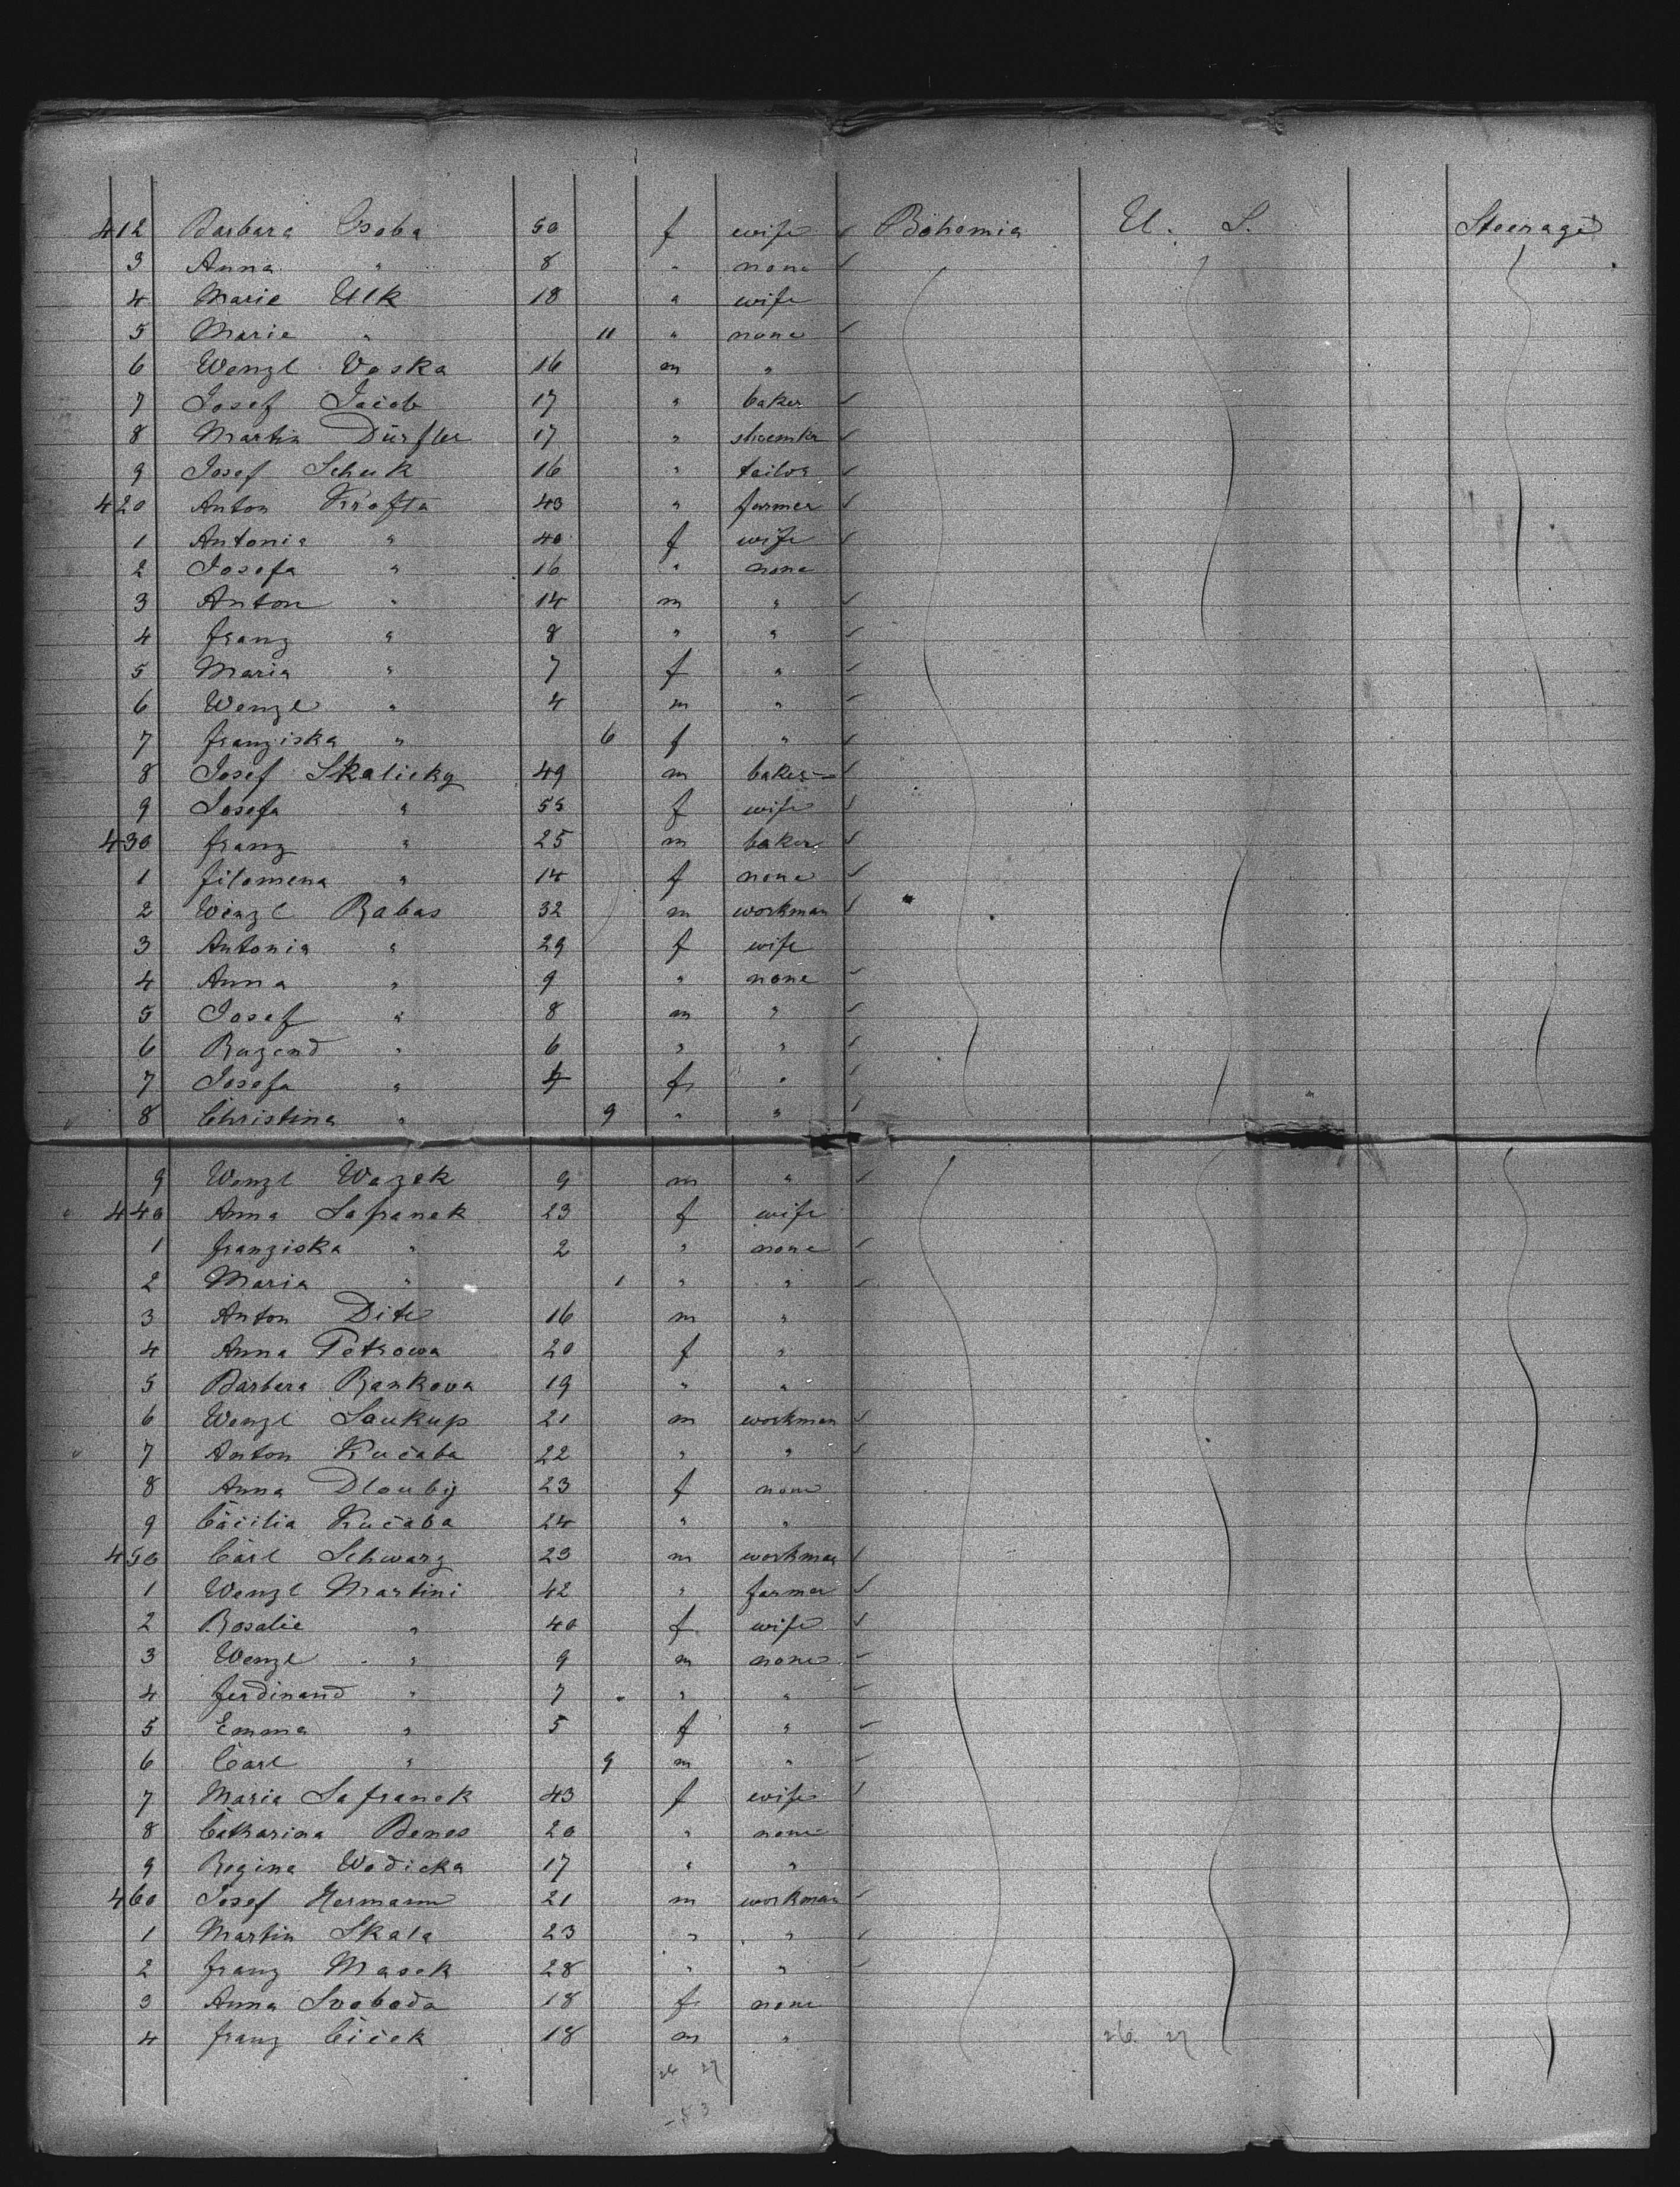 412 Barbara Osoba 50 f wife Böhemia U. S. Steerage
3 Anna " 8 " none
4 Marie Ulk 18 " wife
5 Marie " 11 " none
6 Wenzl Voska 16 m "
7 Josef Jacob 17 " baker
8 Martin Dürfler 17 " shoemkr
9 Josef Schuk 16 " tailor
420 Anton Krafta 43 " farmer
1 Antonia " 40 f wife
2 Josefa " 16 " none
3 Anton " 14 m "
4 franz " 8 " "
5 Maria " 7 f "
6 Wenzl " 4 m "
7 franziska " 6 f "
8 Josef Skalicky 49 m baker
9 Josefa " 55 f wife
430 franz " 25 m baker
1 filomena " 14 f none
2 Wenzl Rabas 32 m workman
3 Antonia " 29 f wife
4 Anna " 9 " none
5 Josef " 8 m "
6 " 6 " "
7 Josefa " 4 f "
8 Christina " 9 " "
9 Wenzl Wazek 9 m "
440 Anna Safranek 23 f wife
1 franziska " 2 " none
2 Maria " 1 " "
3 Anton Dite 16 m "
4 Anna Petrowa 20 f "
5 Barbara Rankova 19 " "
6 Wenzl Saukup 21 m workman
7 Anton Kučaba 22 " "
8 Anna Dlouby 23 f none
9 Cäcilia Kučaba 24 " "
450 Carl Schwarz 23 m workman
1 Wenzl Martini 42 " farmer
2 Rosalie " 40 f wife
3 Wenzl " 9 m none
4 ferdinand " 7 " "
5 Emma " 5 f "
6 Carl " 9 m "
7 Maria Safranek 43 f wife
8 Catharina Benes 20 " none
9 Regina Wodicka 17 " "
460 Josef Hermann 21 m workman
1 Martin Skala 23 " "
2 franz Masek 28 " "
3 Anna Svoboda 18 f none
4 franz Cicek 18 m " 26 27
26 27